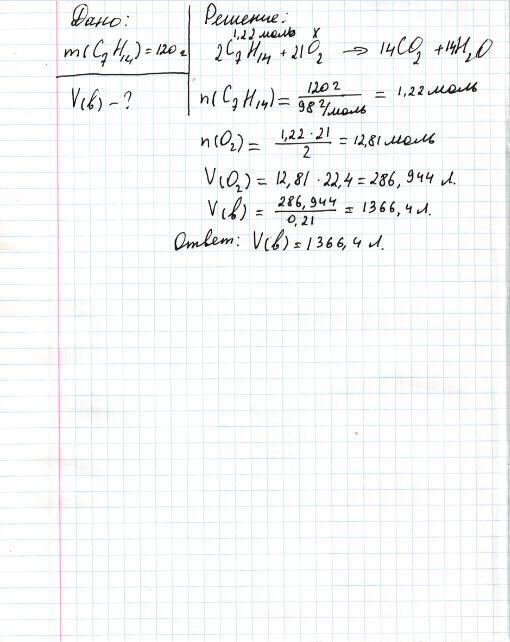 Дано:
m(C₇H₁₄) = 120 г
V(в) - ?
Решение:
1,22 моль x
2C₇H₁₄ + 21O₂ → 14CO₂ + 14H₂O
n(C₇H₁₄) = 120 г / 98 г/моль = 1,22 моль
n(O₂) = 1,22 · 21 / 2 = 12,81 моль
V(O₂) = 12,81 · 22,4 = 286,944 л.
V(в) = 286,944 / 0,21 = 1366,4 л.
Ответ: V(в) = 1366,4 л.